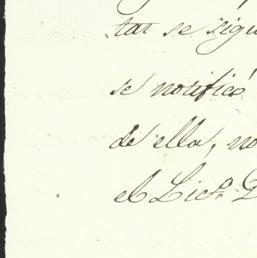 tar se sigu
se notificó
de ella, no
el Licdo. D